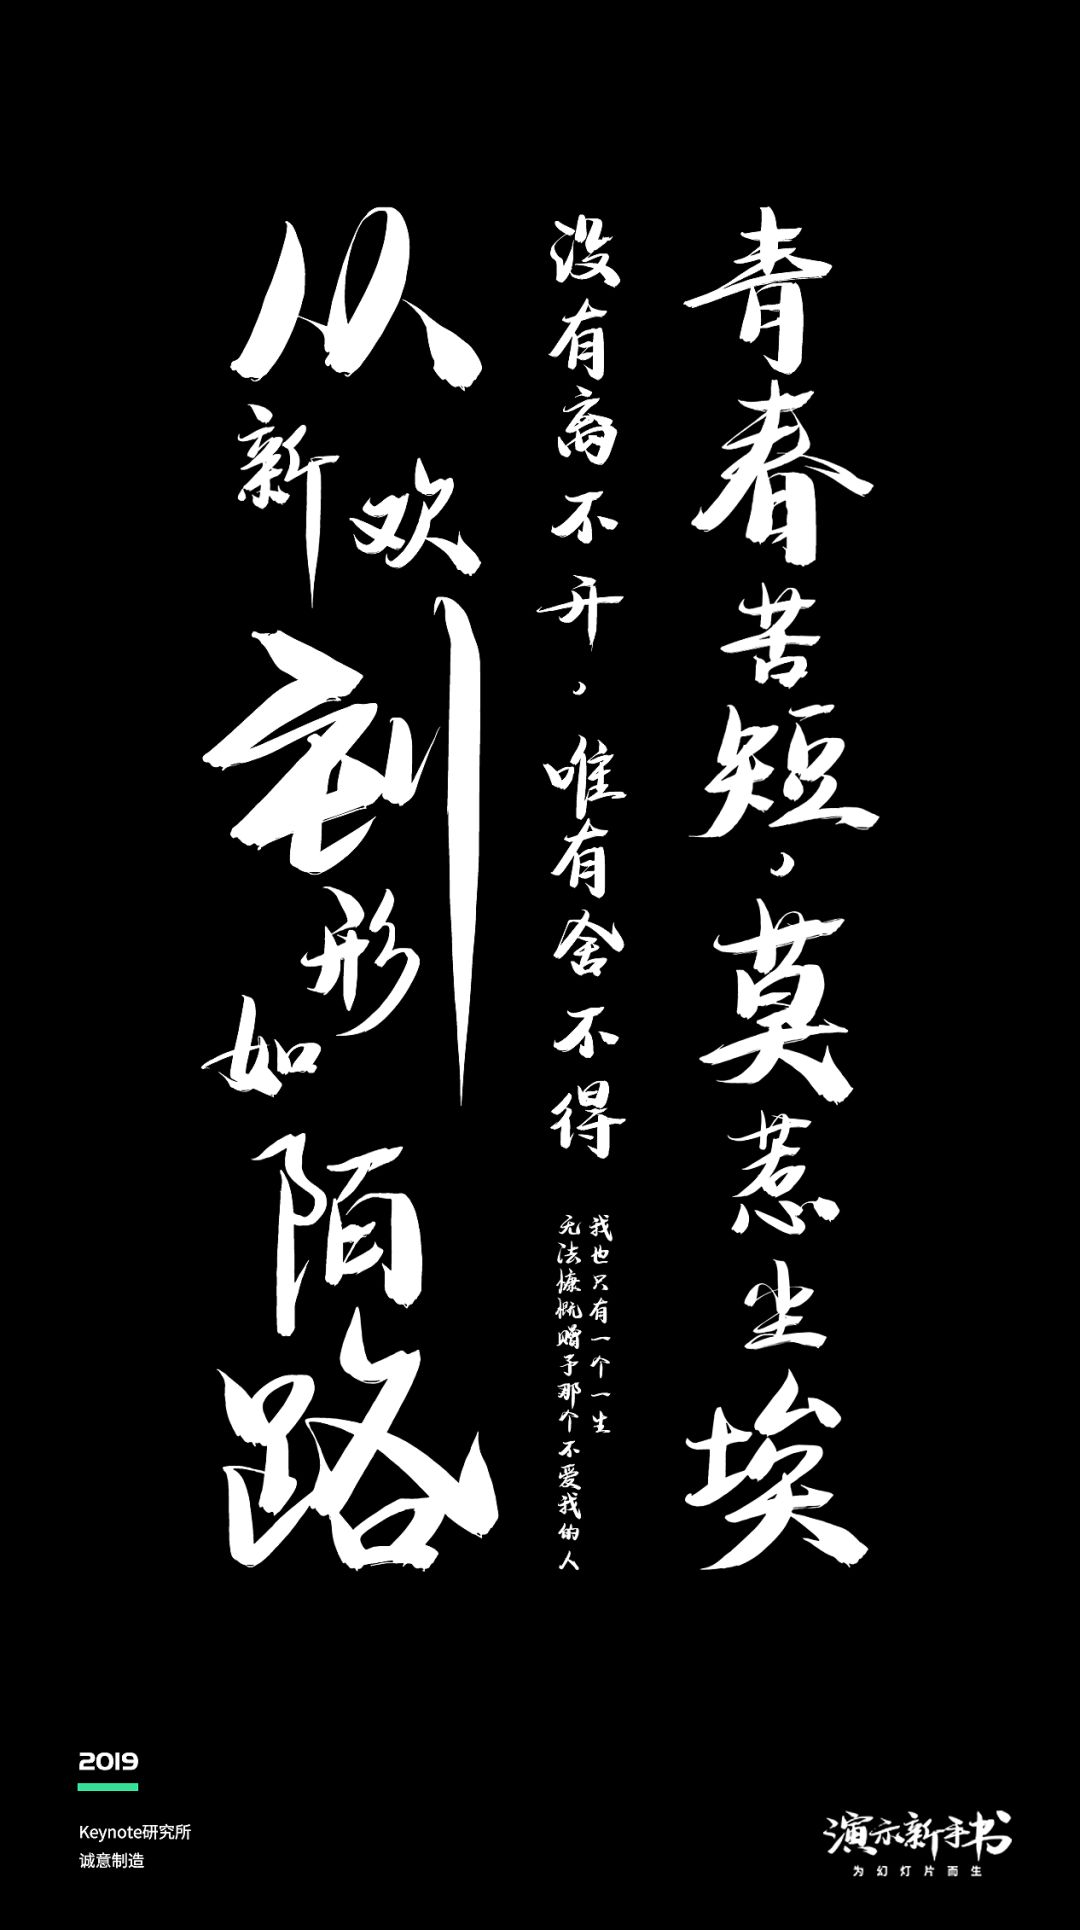 青春苦短，莫惹尘埃
没有离不开，唯有舍不得
我也只有一个一生
无法慷慨赠予那个不爱我的人
从新欢到形如陌路
2019
Keynote研究所
诚意制造
演示新手书
为幻灯片而生